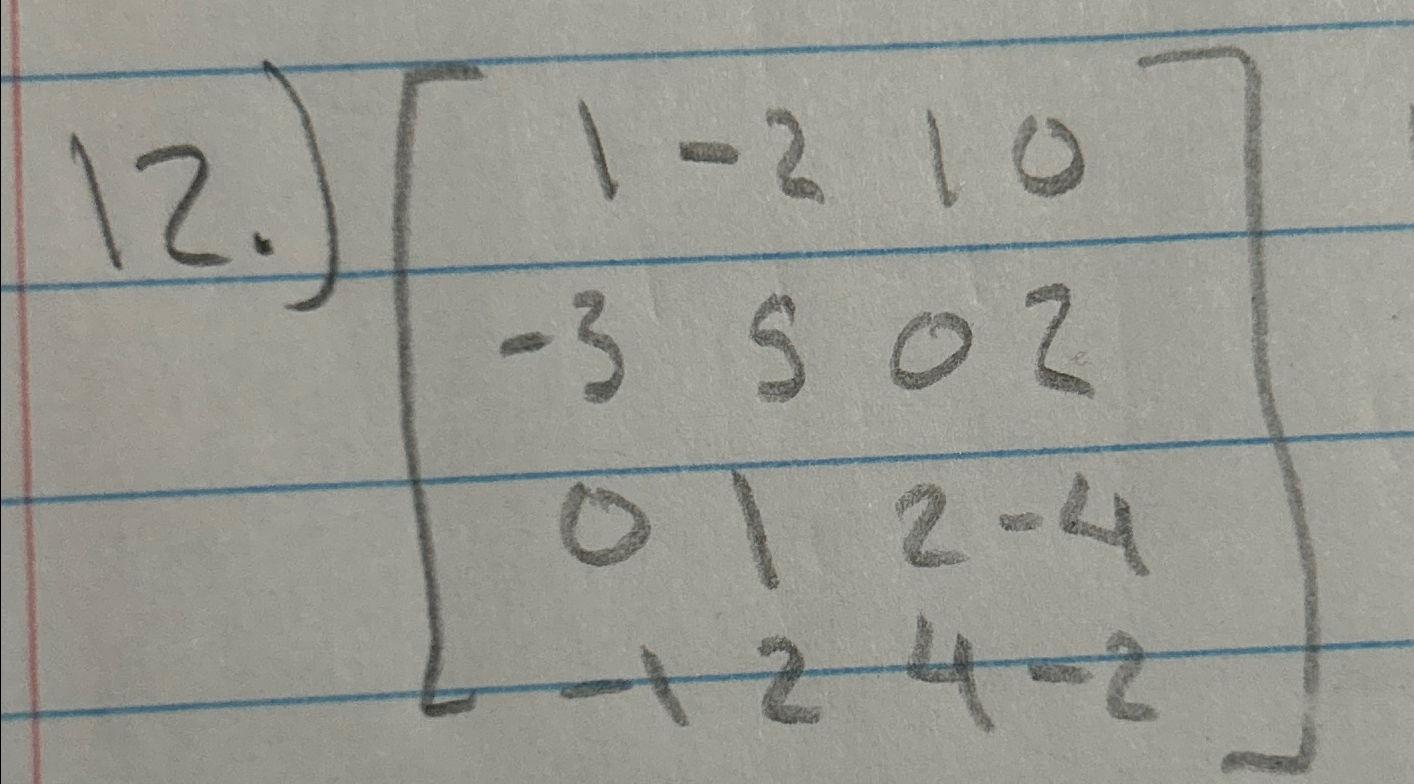 12.) [ 1 -2 1 0
-3 5 0 2
0 1 2 -4
-1 2 4 -2 ]